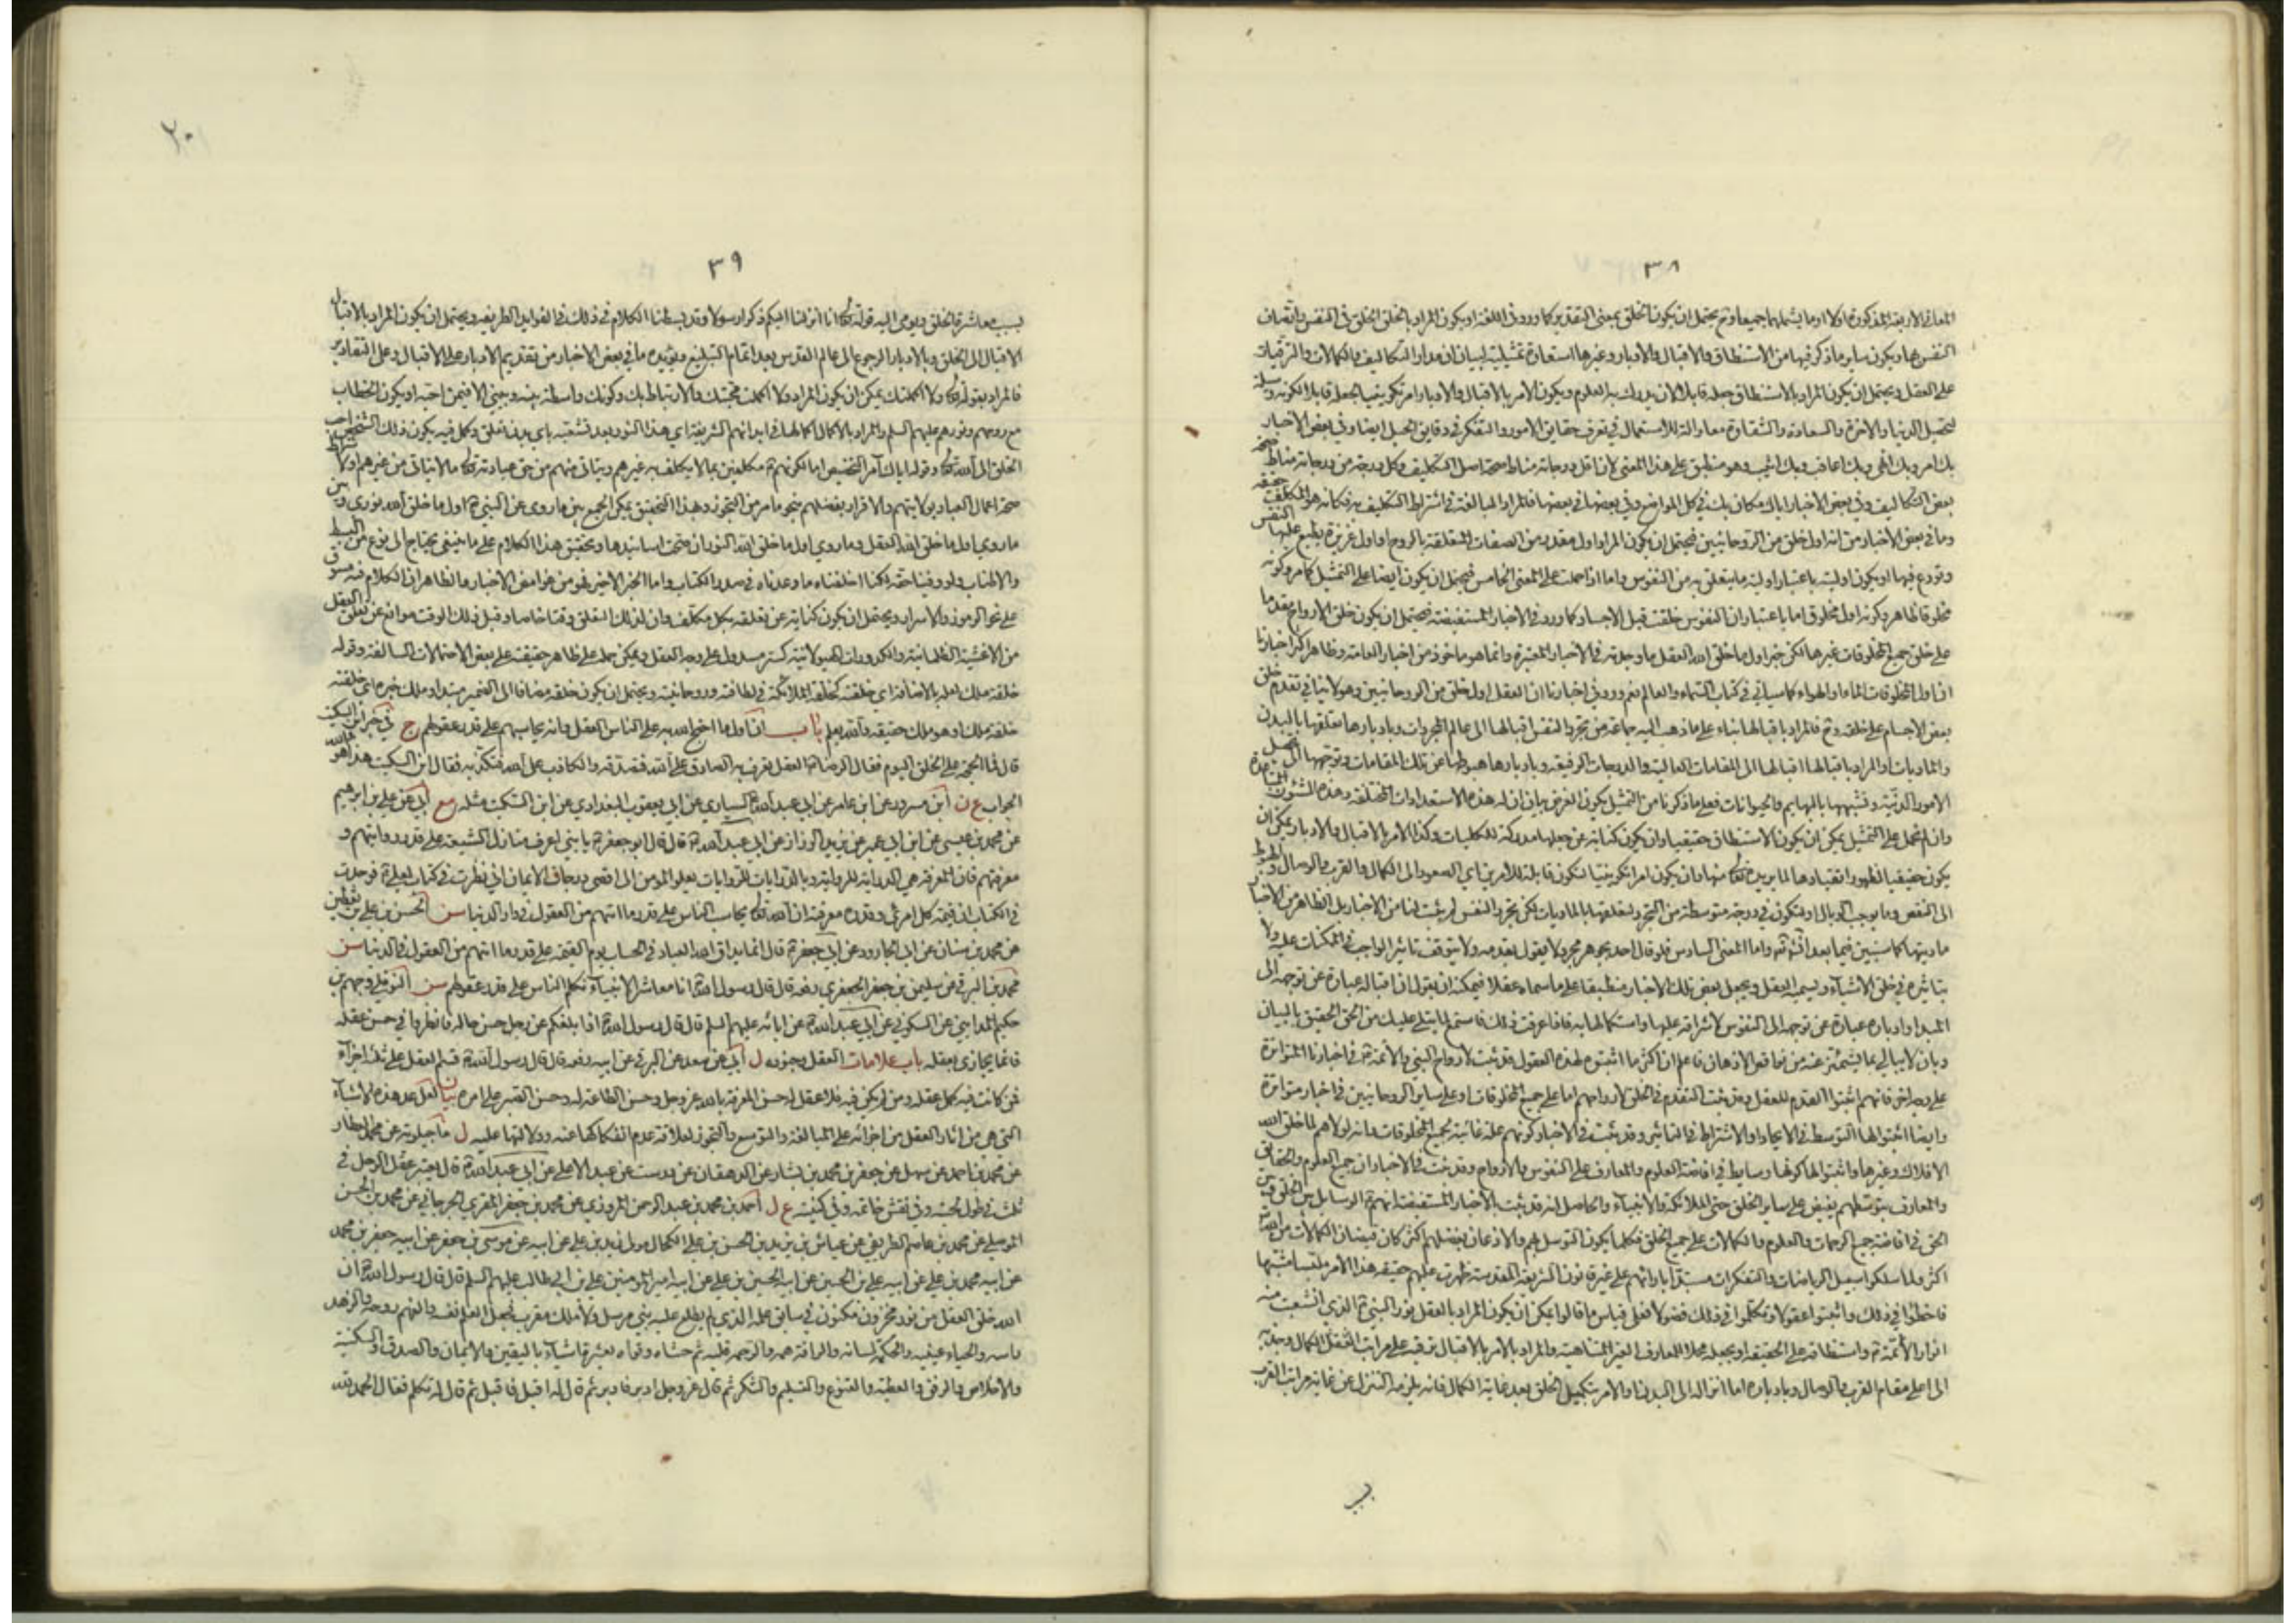 ٣٨
المعاني الاربعة المذكورة اولا او ما يشملهما جميعا وح يحتمل ان يكون الخلق بمعنى التقدير كما ورد في اللغة او يكون المراد بالخلق الخلق في النفس واتصاف
النفس بها ويكون ساير ما ذكر فيها من الاستنطاق والاقبال والادبار وغيرها استعارة تمثيلية لبيان ان مدار التكاليف والكمالات والترقيات
على العقل ويحتمل ان يكون المراد بالاستنطاق جعله قابلا لان يدرك به العلوم ويكون الامر بالاقبال والادبار امرا تكوينيا يجعله قابلا لكونه وسيلة
لتحصيل الدنيا والاخرة والسعادة والشقاوة معا والة للاستعمال في تعرف حقايق الامور والتفكر في دقايق الحيل ايضا وفي بعض الاخبار
بك امر وبك انهى وبك اعاقب وبك اثيب وهو منطبق على هذا المعنى لان اقل درجاته مناط صحة اصل التكليف وكل درجة من درجاته مناط صحة
بعض التكاليف وفي بعض الاخبار اياك مكان بك في كل المواضع وفي بعضها في بعضها فالمراد المبالغة في اشتراط التكليف به فكانه هو المكلف حقيقة
وما في بعض الاخبار من انه اول خلق من الروحانيين فيحتمل ان يكون المراد اول مقدر من الصفات المتعلقة بالروح او اول غريزة يطبع عليها النفس
وتودع فيها او يكون اوليته باعتبار اولية ما يتعلق به من النفوس واما اذا حملت على المعنى الخامس فيحتمل ان يكون ايضا على التمثيل كما مر وكونه
مخلوقا ظاهر وكونه اول مخلوق اما باعتبار ان النفوس خلقت قبل الاجساد كما ورد في الاخبار المستفيضة فيحتمل ان يكون خلق الارواح مقدما
على خلق جميع المخلوقات غيرها لكن خبر اول ما خلق الله العقل ما وجدته في الاخبار المعتبرة وانما هو ماخوذ من اخبار العامة وظاهر اكثر اخبارنا
ان اول المخلوقات الماء او الهواء كما سياتي في كتاب السماء والعالم نعم ورد في اخبارنا ان العقل اول خلق من الروحانيين وهو لا ينافي تقدم خلق
بعض الاجسام على خلقه وح فالمراد باقبالها بناء على ما ذهب اليه جماعة من تجرد النفس اقبالها الى عالم المجردات وبادبارها تعلقها بالبدن
والماديات او المراد باقبالها اقبالها الى المقامات العالية والدرجات الرفيعة وبادبارها هبوطها عن تلك المقامات وتوجهها الى تحصيل
الامور الدنية وتشبهها بالبهايم والحيوانات فعلى ما ذكرنا من التمثيل يكون الغرض بيان ان له هذه الاستعدادات المختلفة وهذه الشؤون المتباعدة
وان لم نحمل على التمثيل يمكن ان يكون الاستنطاق حقيقيا وان يكون كناية عن جعلها مدركة للكليات وكذا الامر بالاقبال والادبار يمكن ان
يكون حقيقيا لظهور انقيادها لما يريده تعالى منها وان يكون امرا تكوينيا لتكون قابلة للامرين اي الصعود الى الكمال والقرب والوصال والهبوط
الى النقص وما يوجب الوبال او لتكون في درجة متوسطة من التجرد لتعلقها بالماديات لكن تجرد النفس لم يثبت لنا من الاخبار بل الظاهر من الاخبار
ماديتها كما سنبين فيما بعد ان شاء الله واما المعنى السادس فلو قال احد بجوهر مجرد لا يقول بقدمه ولا يتوقف تاثير الواجب في الممكنات عليه ولا
بتاثيره في خلق الاشياء ويسميه العقل ويجعل بعض تلك الاخبار منطبقا على ما سماه عقلا فيمكنه ان يقول ان اقباله عبارة عن توجهه الى
المبدا وادباره عبارة عن توجهه الى النفوس لاشراقه عليها واستكمالها به فاذا عرفت ذلك فاستمع لما يتلى عليك من الحق الحقيق بالبيان
وبان لا يبالى بما يشمئز عنه من نواقص الاذهان فاعلم ان اكثر ما اثبتوه لهذه العقول قد ثبت لارواح النبي والائمة في اخبارنا المتواترة
على وجه اخر فانهم اثبتوا القدم للعقل وقد ثبت التقدم في الخلق لارواحهم اما على جميع المخلوقات او على ساير الروحانيين في اخبار متواترة
وايضا اثبتوا لها التوسط في الايجاد او الاشتراط في التاثير وقد ثبت في الاخبار كونهم علة غائية لجميع المخلوقات وانه لولاهم لما خلق الله
الافلاك وغيرها واثبتوا لها كونها وسايط في افاضة العلوم والمعارف على النفوس والارواح وقد ثبت في الاخبار ان جميع العلوم والحقايق
والمعارف بتوسطهم يفيض على ساير الخلق حتى الملائكة والانبياء والحاصل انه قد ثبت بالاخبار المستفيضة انهم الوسايل بين الخلق وبين
الحق في افاضة جميع الرحمات والعلوم والكمالات على جميع الخلق فكلما يكون التوسل بهم والاذعان بفضلهم اكثر كان فيضان الكمالات من الله
اكثر ولما سلكوا سبيل الرياضات والتفكرات مستبدين باراائهم على غير قانون الشريعة المقدسة ظهرت عليهم حقيقة هذا الامر ملتبسا مشتبها
فاخطاوا في ذلك واثبتوا عقولا وتكلموا في ذلك فضولا فعلى قياس ما قالوا يمكن ان يكون المراد بالعقل نور النبي الذي انشعبت منه
انوار الائمة واستنطاقه على الحقيقة او بجعله محلا للمعارف الغير المتناهية والمراد بالامر بالاقبال ترقيه على مراتب الكمال وجذبه
الى اعلى مقام القرب والوصال وبادباره اما انزاله الى البدن او الامر بتكميل الخلق بعد غاية الكمال فانه يلزمه التنزل عن غاية مراتب القرب
٢٠
٣٩
بسبب معاشرة الخلق ويومي اليه قوله تعالى انا انزلنا اليكم ذكرا رسولا وقد بسطنا الكلام في ذلك في الفوايد الطريفة ويحتمل ان يكون المراد بالاقبال
الاقبال الى الخلق وبالادبار الرجوع الى عالم القدس بعد اتمام التبليغ ويؤيده ما في بعض الاخبار من تقديم الادبار على الاقبال وعلى التقادير
فالمراد بقوله تعالى ولا اكملتك يمكن ان يكون المراد ولا اكملت محبتك والارتباط بك وكونك واسطة بينه وبيني الا فيمن احبه او يكون الخطاب
مع روحهم ونورهم عليهم السلم والمراد بالاكمال اكمالها في ابدانهم الشريفة اي هذا النور بعد تشعبه باي بدن تعلق وكمل فيه يكون ذلك الشخص احب
الخلق الى الله تعالى وقوله اياك آمر التخصيص اما لكونهم مكلفين بما لا يكلف به غيرهم ويتاتى منهم من حق عبادته تعالى ما لا يتاتى من غيرهم او لاشتراط
صحة اعمال العباد بولايتهم والاقرار بفضلهم بنحو ما مر من التجوز وبهذا التحقيق يمكن الجمع بين ما روي عن النبي اول ما خلق الله نوري وبين
ما روي اول ما خلق الله العقل وما روي اول ما خلق الله النور ان صحت اسانيدها وتحقيق هذا الكلام على ما ينبغي يحتاج الى نوع من البسط
والاطناب ولو وفينا حقه لكنا اخلفنا ما وعدناه في صدر الكتاب واما الخبر الاخير فهو من غوامض الاخبار والظاهر ان الكلام فيه مسوق
على نحو الرموز والاسرار ويحتمل ان يكون كناية عن تعلقه بكل مكلف وان لذلك التعلق وقتا خاصا وقبل ذلك الوقت موانع عن تعلق العقل
من الاغشية الظلمانية والكدورات الهيولانية كستر مسدول على وجه العقل ويمكن حمله على ظاهر حقيقته على بعض الاحتمالات السالفة وقوله
خلقة ملك لعله بالاضافة اي خلقته كخلقة الملائكة في لطافته وروحانيته ويحتمل ان يكون خلقه مضافا الى الضمير مبتدا وملك خبره اي خلقته
خلقة ملك او هو ملك حقيقة والله يعلم باب ان اول ما احتج الله به على الناس العقل وانه يحاسبهم على قدر عقولهم ج في خبر ابن السكيت
قال فما الحجة على الخلق اليوم فقال الرضا العقل تعرف به الصادق على الله فتصدقه والكاذب على الله فتكذبه فقال ابن السكيت هذا هو والله
الجواب ع ن ابن مسرور عن ابن عامر عن ابي عبد الله السياري عن ابي يعقوب البغدادي عن ابن السكيت مثله مع ابي عن علي بن ابرهيم
عن محمد بن عيسى عن ابن ابي عمير عن بريد الرزاز عن ابي عبد الله قال قال ابو جعفر يا بني اعرف منازل الشيعة على قدر روايتهم و
معرفتهم فان المعرفة هي الدراية للرواية وبالدرايات للروايات يعلو المومن الى اقصى درجات الايمان اني نظرت في كتاب لعلي فوجدت
في الكتاب ان قيمة كل امرئ وقدره معرفته ان الله تعالى يحاسب الناس على قدر ما اتيهم من العقول في دار الدنيا سن الحسن بن علي بن يقطين
عن محمد بن سنان عن ابي الجارود عن ابي جعفر قال انما يداق الله العباد في الحساب يوم القيمة على قدر ما اتيهم من العقول في الدنيا سن
محمد بن البرقي عن سليمن بن جعفر الجعفري رفعه قال قال رسول الله انا معاشر الانبياء نكلم الناس على قدر عقولهم سن النوفلي وجهم بن
حكيم المدايني عن السكوني عن ابي عبد الله عن ابائه عليهم السلم قال قال رسول الله اذا بلغكم عن رجل حسن حاله فانظروا في حسن عقله
فانما يجازى بعقله باب علامات العقل وجنوده ل ابي عن سعد عن البرقي عن ابيه رفعه قال قال رسول الله قسم العقل على ثلثة اجزاء
فمن كانت فيه كمل عقله ومن لم تكن فيه فلا عقل له حسن المعرفة بالله عز وجل وحسن الطاعة له وحسن الصبر على امره بيان لعل عد هذه الاشياء
التي هي من اثار العقل من اجزائه على المبالغة والتوسع والتجوز لعلاقة عدم انفكاكها عنه ودلالتها عليه ل ماجيلويه عن محمد العطار
عن محمد بن احمد عن سهل عن جعفر بن محمد بن بشار عن الدهقان عن درست عن عبد الاعلى عن ابي عبد الله قال يعتبر عقل الرجل في
ثلث في طول لحيته وفي نقش خاتمه وفي كنيته ع ل احمد بن محمد بن عبد الرحمن المروزي عن محمد بن جعفر المقري الجرجاني عن محمد بن الحسن
الموصلي عن محمد بن عاصم الطريفي عن عياش بن يزيد بن الحسن بن علي الكحال مولى زيد بن علي عن ابيه عن موسى بن جعفر عن ابيه جعفر بن محمد
عن ابيه محمد بن علي عن ابيه علي بن الحسين عن ابيه الحسين بن علي عن ابيه امير المومنين علي بن ابي طالب عليهم السلم قال قال رسول الله ان
الله خلق العقل من نور مخزون مكنون في سابق علمه الذي لم يطلع عليه نبي مرسل ولا ملك مقرب فجعل العلم نفسه والفهم روحه والزهد
راسه والحياء عينيه والحكمة لسانه والرافة همه والرحمة قلبه ثم حشاه وقواه بعشرة اشياء باليقين والايمان والصدق والسكينة
والاخلاص والرفق والعطية والقنوع والتسليم والشكر ثم قال عز وجل ادبر فادبر ثم قال له اقبل فاقبل ثم قال له تكلم فقال الحمد لله